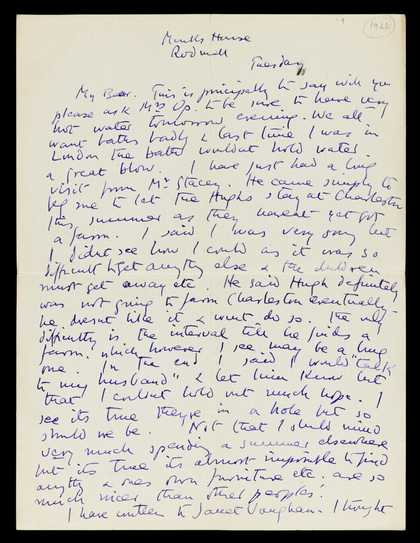 1922
Monks House
Rodmell
Tuesday
My Bear. This is principally to say will you
please ask Mrs Up. to be sure to have very
hot water tomorrow evening. We all
want baths badly & last time I was in
London the bath wouldnt hold water -
a great blow. I have just had a long
visit from Mr Stacey. He came simply to
beg me to let the Hughs stay at Charleston
this summer as they havent yet got
a farm. I said I was very sorry but
I didnt see how I could as it was so
difficult to get anything else & the children
must get away etc. He said Hugh definitely
was not going to farm Charleston eventually -
he doesnt like it & wont do so. The only
difficulty is the interval till he finds a
farm, which however I see may be a long
one. In the end I said I would "talk
to my husband" & let him know but
that I couldnt hold out much hope. I
see its true theyre in a hole but so
should we be. Not that I should mind
very much spending a summer elsewhere
but its true its almost impossible to find
anything & ones own furniture etc. are so
much nicer than other peoples!
I have written to Janet Vaughan. I thought